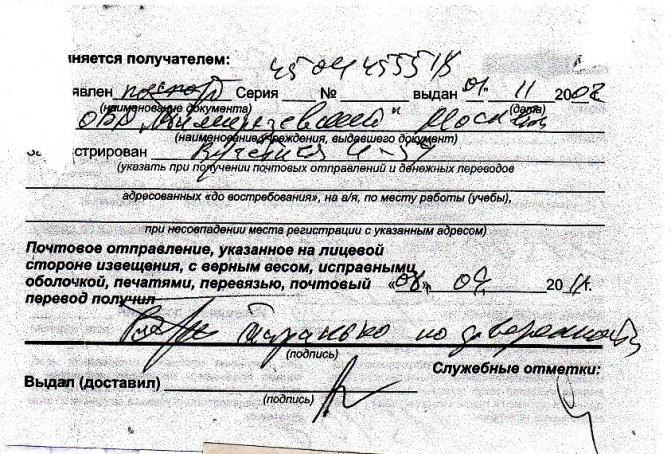 няется получателем:
45 04 455518
явлен паспорт Серия № выдан 01. 11 2002
(наименование документа) (дата)
ОВД "Тимирязевский" Москвы
(наименование учреждения, выдавшего документ)
стрирован
(указать при получении почтовых отправлений и денежных переводов
адресованных «до востребования», на а/я, по месту работы (учебы),
при несовпадении места регистрации с указанным адресом)
Почтовое отправление, указанное на лицевой
стороне извещения, с верным весом, исправными
оболочкой, печатями, перевязью, почтовый « » 20 г.
перевод получил
Таранько по доверенности
(подпись)
Служебные отметки:
Выдал (доставил)
(подпись)